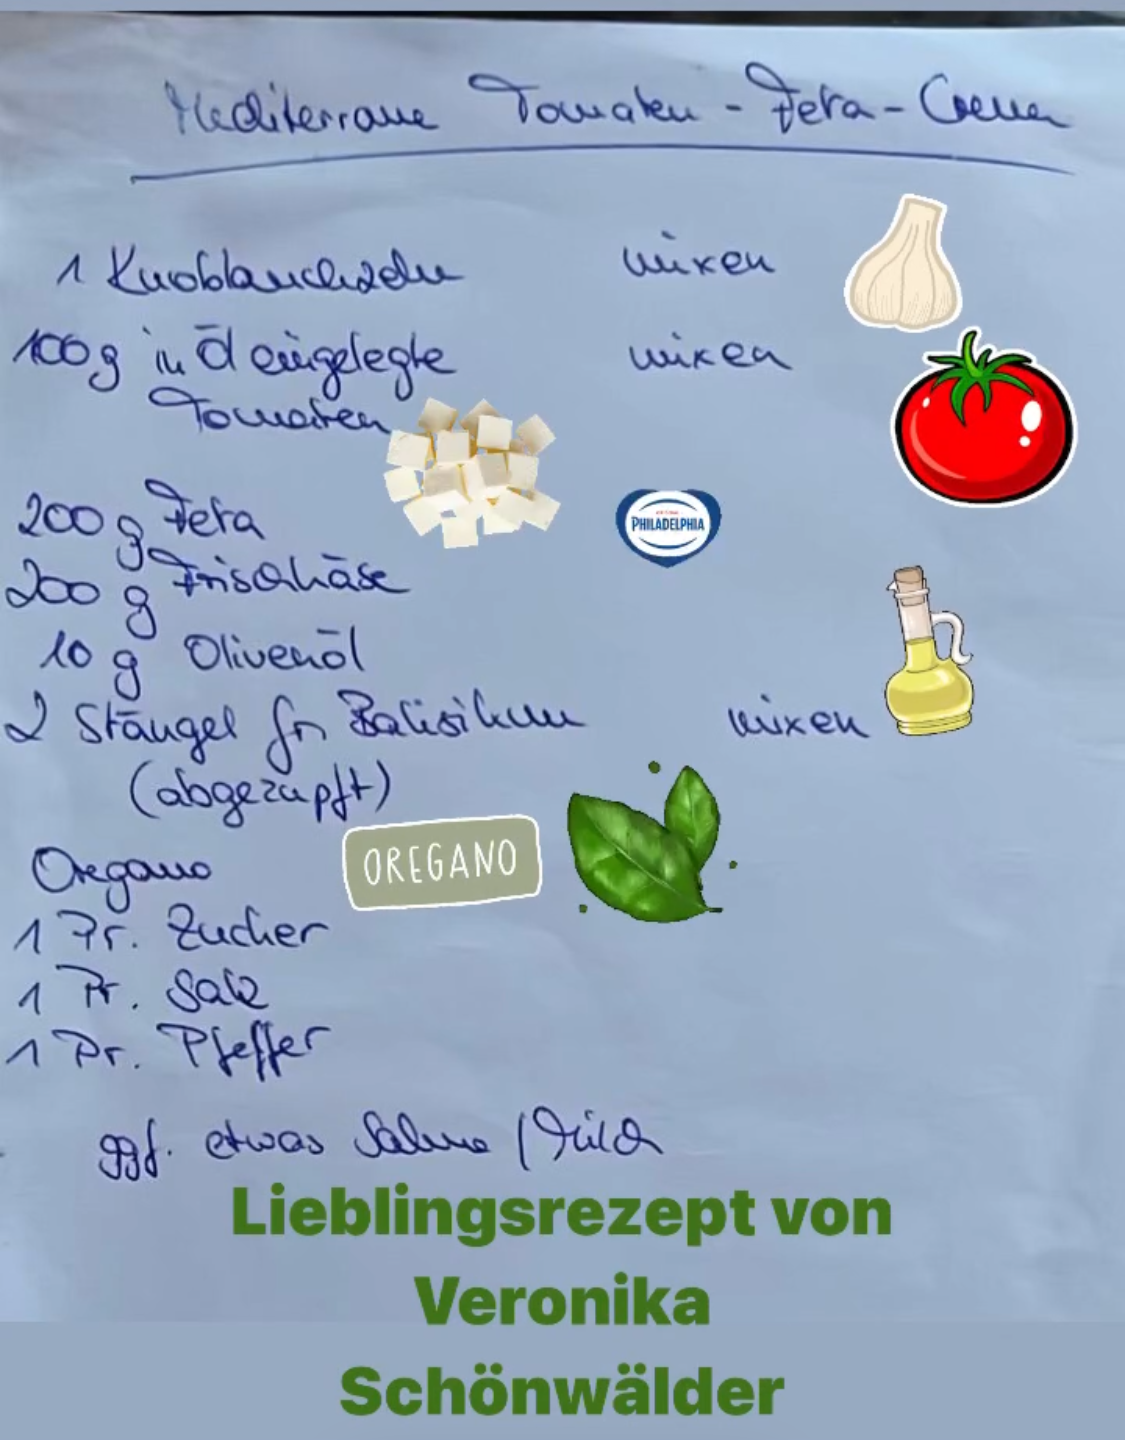 Mediterrane Tomaten - Feta - Creme
1 Knoblauchzehe mixen
100g in Öl eingelegte mixen
Tomaten
200 g Feta
PHILADELPHIA
200 g Frischkäse
10 g Olivenöl
2 Stängel fr Balisikum mixen
(abgezupft)
Oregano
OREGANO
1 Pr. Zucker
1 Pr. Salz
1 Pr. Pfeffer
ggf. etwas Sahne / Milch
Lieblingsrezept von
Veronika
Schönwälder